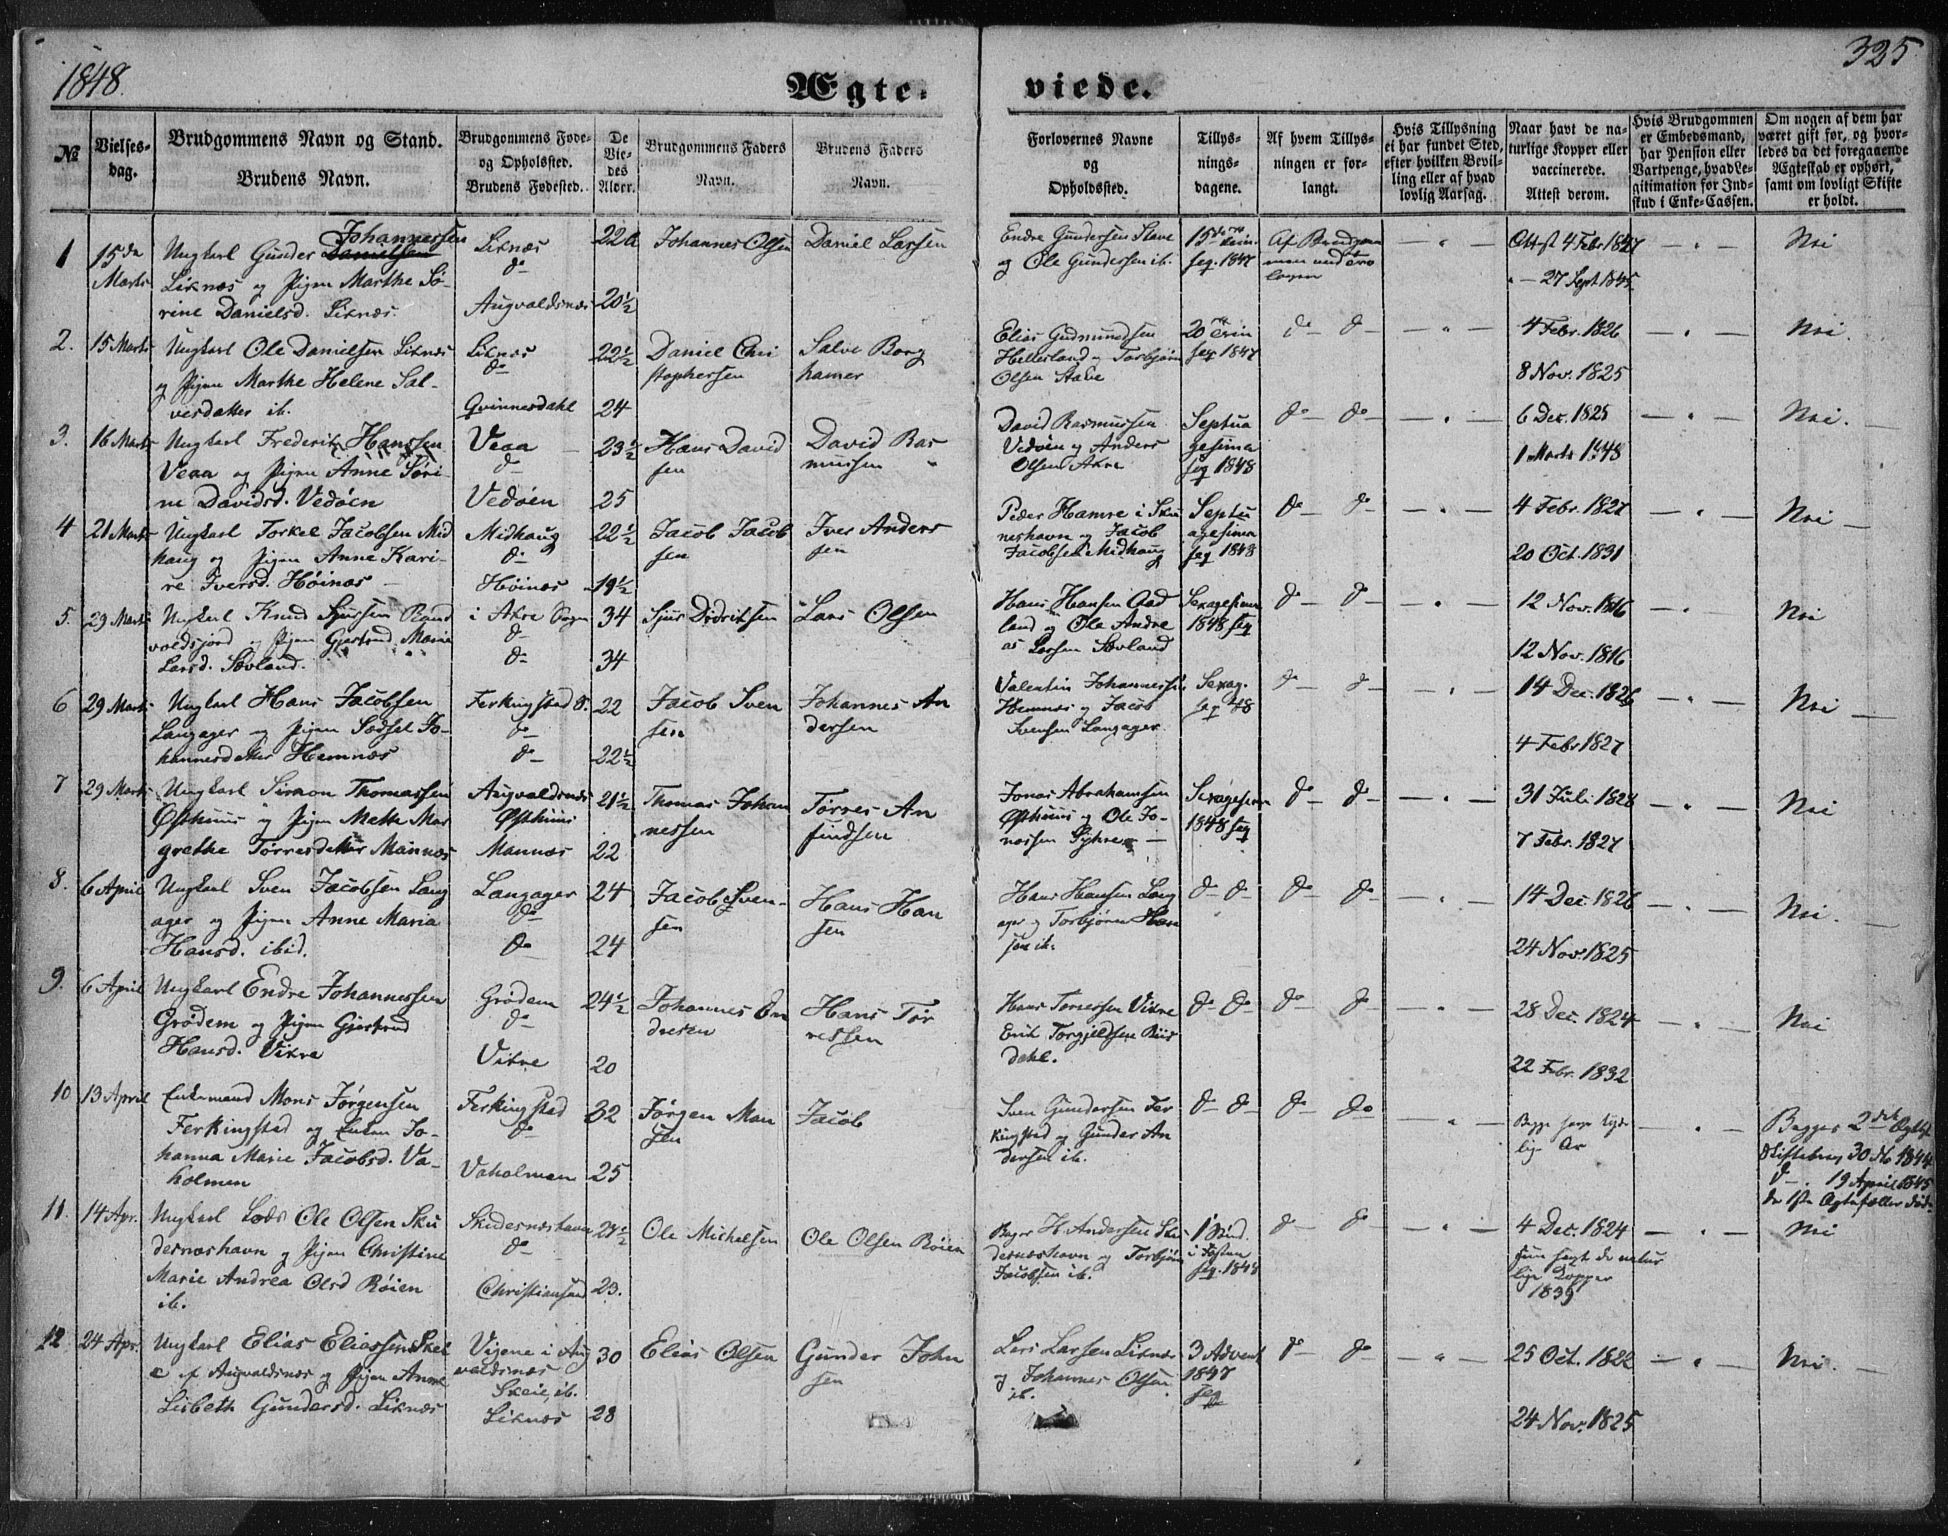 1848.
Ægte-
viede.
325
№
Vielses-
dag.
Brudgommens Navn og Stand.
Brudens Navn.
Brudgommens Føde-
og Opholdssted.
Brudens Fødested.
De
Vie-
des
Alder.
Brudgommens Faders
Navn.
Brudens Faders
Navn.
Forlovernes Navne
og
Opholdsted.
Tillys-
nings-
dagene.
Af hvem Tillys-
ningen er for-
langt.
Hvis Tillysning
ei har fundet Sted,
efter hvilken Bevil-
ling eller af hvad
lovlig Aarsag.
Naar havt de na-
turlige Kopper eller
vaccinerede.
Attest derom.
Hvis Brudgommen
er Embedsmand,
har Pension eller
Vartpenge, hvad Le-
gitimation for Ind-
skud i Enke-Cassen.
Om nogen af dem har
været gift før, og hvor-
ledes da det foregaaende
Ægteskab er ophørt,
samt om lovligt Skifte
er holdt.
1
15de
Marts
Johannessen
Ungkarl Gunder Danielsen
Liknæs og Pigen Marthe Sø-
rine Danielsd. Liknæs.
Liknæs
do
Augvaldsnæs
22
20½
Johannes Olsen
Daniel Larsen
Endre Gundersen Stave
og Ole Gundersen ib.
15de
seq. 1847
Af Brudgom
men
4 Febr 1827
27 Sept 1845
Nei
2.
15 Marts
Ungkarl Ole Danielsen Liknæs
og Pigen Marthe Helene Sal-
vesdatter ib.
Liknæs
do
Qvinnesdahl
22½
24
Daniel Chri
stophersen
Salve Borg
hamer
Elias Gudmundsen
Hellesland og Torbjørn
Olsen Stave
20 Trin
seq 1847
do do
4 Febr. 1826
8 Nov. 1825
Nei
3.
16 Marts
Ungkarl Frederik Hanssen
Veaa og Pigen Anne Søri-
ne Davidsd. Vedøen
Veaa
do
Vedøen
23½
25
Hans David
sen
David Ras
mussen
David Rasmussen
Vedøen og Anders
Olsen Akre
Septua
gesima
seq 1848
do do
6 Dec. 1825
1 Marts 1848
Nei.
4
21 Marts
Ungkarl Torkel Jacobsen Mid
haug og Pigen Anne Kari-
ne Iversd. Høinæs
Midhaug
do
Høinæs
22½
19½
Jacob Jacob
sen
Iver Anders
sen
Peder Hamre i Sku
neshavn og Jacob
Jacobsen Midhaug
Septu
agesima
seq 1848
do do
4 Febr. 1827
20 Oct. 1831
Nei
5.
29 Marts
Ungkarl Knud Sjursen Rand
voldsfjord og Pigen Gjertrud Marie
Larsd. Søvland.
i Akre Sogn
do
do
34
34
Sjur Didriksen
Lars Olsen
Hans Hansen Aad
land og Ole Andre
as Larsen Søvland
Sexagesima
1848 seq
do do
12 Nov. 1816
12 Nov. 1816
Nei
6
29 Marts
Ungkarl Hans Jacobsen
Langager og Pigen Sidsel Jo-
hannesdatter Hemnæs
Ferkingstad S.
do
do
22
22½
Jacob Sven
sen
Johannes An
dersen
Valentin Johannessen
Hemnæs og Jacob
Svensen Langager
Sexag.
seq 48
do do
14 Dec. 1826
4 Febr 1827
Nei
7
29 Marts
Ungkarl Simon Thomassen
Østhuus og Pigen Mette Mar
grethe Tørresdatter Mannæs
Augvaldsnæs
Østhuus
Mannæs
21½
22
Thomas Johan
nessen
Tørres An
findsen
Jonas Abrahamsen
Østhuus og Ole Jo-
nassen Syhre
Sexagesima
1848 seq
do do
31 Juli 1828
7 Febr. 1827
Nei
8.
6 April
Ungkarl Sven Jacobsen Lang
ager og Pigen Anne Maria
Hansd. ibid.
Langager
do
do
24
24
Jacob Sven-
sen
Hans Han
sen
Hans Hansen Lang
ager og Torbjørn Han
sen ib.
do do
do do
14 Dec. 1826
24 Nov. 1825
Nei.
9.
6 April
Ungkarl Endre Johannessen
Grødem og Pigen Gjertrud
Hansd. Vikre
Grødem
do
Vikre
24½
20
Johannes En
dresen
Hans Tør
ressen
Hans Torressen Vikre
Erik Torgjeldsen Biis
dahl.
do do
do do
28 Dec. 1824
22 Febr. 1832
Nei
10
13 April
Enkemand Mons Jørgensen
Ferkingstad og Enken Jo-
hanna Marie Jacobsd. Va-
holmen
Ferkingstad
do
Vaholmen
32
25
Jørgen Mon
sen
Jacob
Sven Gundersen Fer
kingstad og Gunder An
dersen ib.
do do
do do
Begge have tyde
lige Ar
Begges 2det Ægtesk
Skiftebrev 30 No 1844
do . 19 April 1845
de 1ste Ægtefæller døde
11.
14 Apr.
Ungkarl Lods Ole Olsen Sku
desneshavn og Pigen Christine
Marie Andrea Olsd Røien
ib.
Skudesneshavn
do
Christiansand
21½
23.
Ole Michelsen
Ole Olsen Røien
H. Andersen Sku
desneshavn og Torbjørn
Jacobsen ib.
1 Sønd.
i Fasten
seq. 1848
do do
4 Dec. 1824
hun havt de natur
lige Kopper
1839
Nei
12
24 Apr.
Ungkarl Elias Eliassen Skei
e af Augvaldsnæs og Pigen Anne
Lisbeth Gundersd. Liknæs
Vigene i Aug
valdsnæs
Skeie, ib.
Liknæs
30
28
Elias Olsen
Gunder John
sen
Lars Larsen Liknæs
og Johannes Olsen
ib.
3 Advent
1847
seq
do do
25 Oct. 1822
24 Nov. 1825
Nei